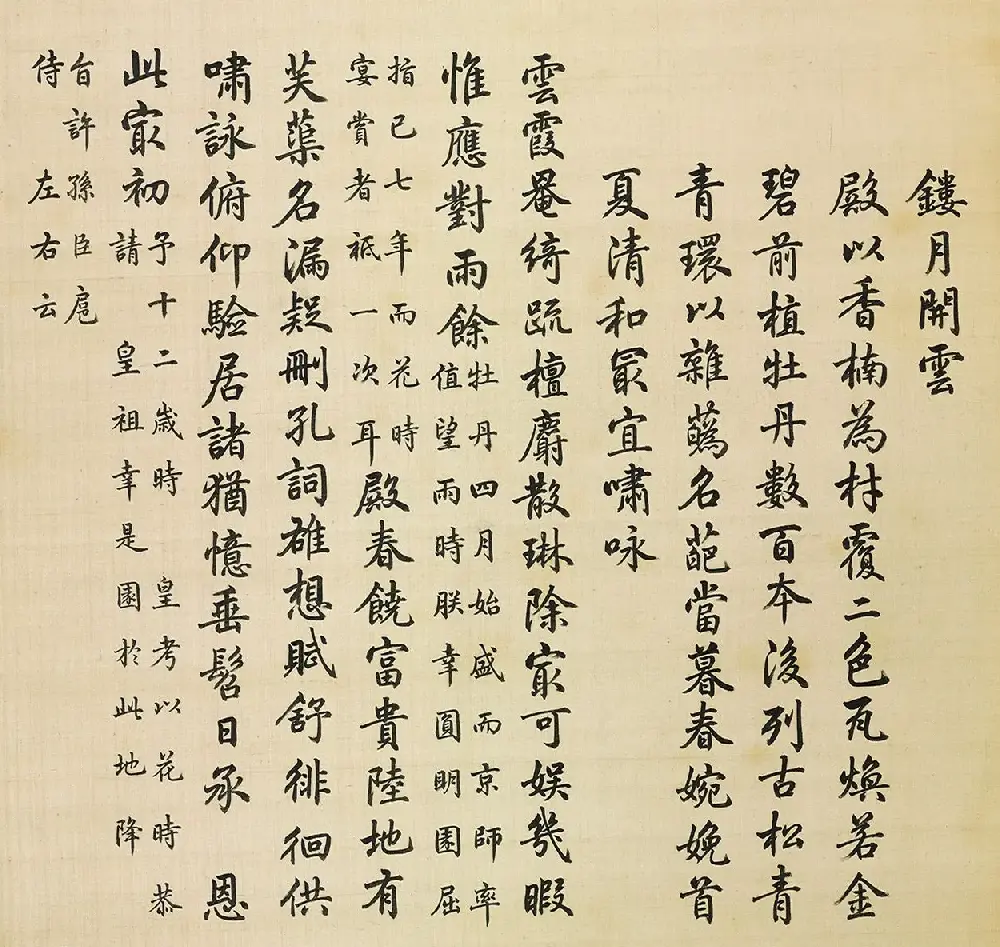 鏤月開雲
殿以香楠為材覆二色瓦煥若金
碧前植牡丹數百本後列古松青
青環以雜蘤名葩當暮春婉娩首
夏清和最宜嘯咏
雲霞罨綺疏檀麝散琳除㝡可娛幾暇
惟應對雨餘牡丹四月始盛而京師率
值望雨時朕幸圓明園屈
指已七年而花時
宴賞者祗一次耳殿春饒富貴陸地有
芙蕖名漏疑刪孔詞雄想賦舒徘徊供
嘯詠俯仰驗居諸猶憶垂髫日承 恩
此㝡初予十二歲時 皇考以花時恭
請 皇祖幸是園於此地降
旨許孫臣扈
侍左右云